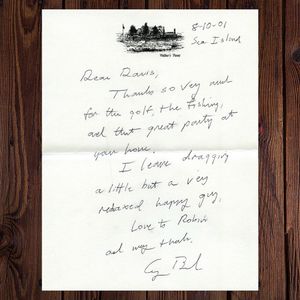 8-10-01
Sea Island
Dear Davis,
Thanks so very much
for the golf, the fishing,
and that great party at
your home.
I leave dragging
a little but a very
relaxed happy guy,
Love to Robin
and many thanks.